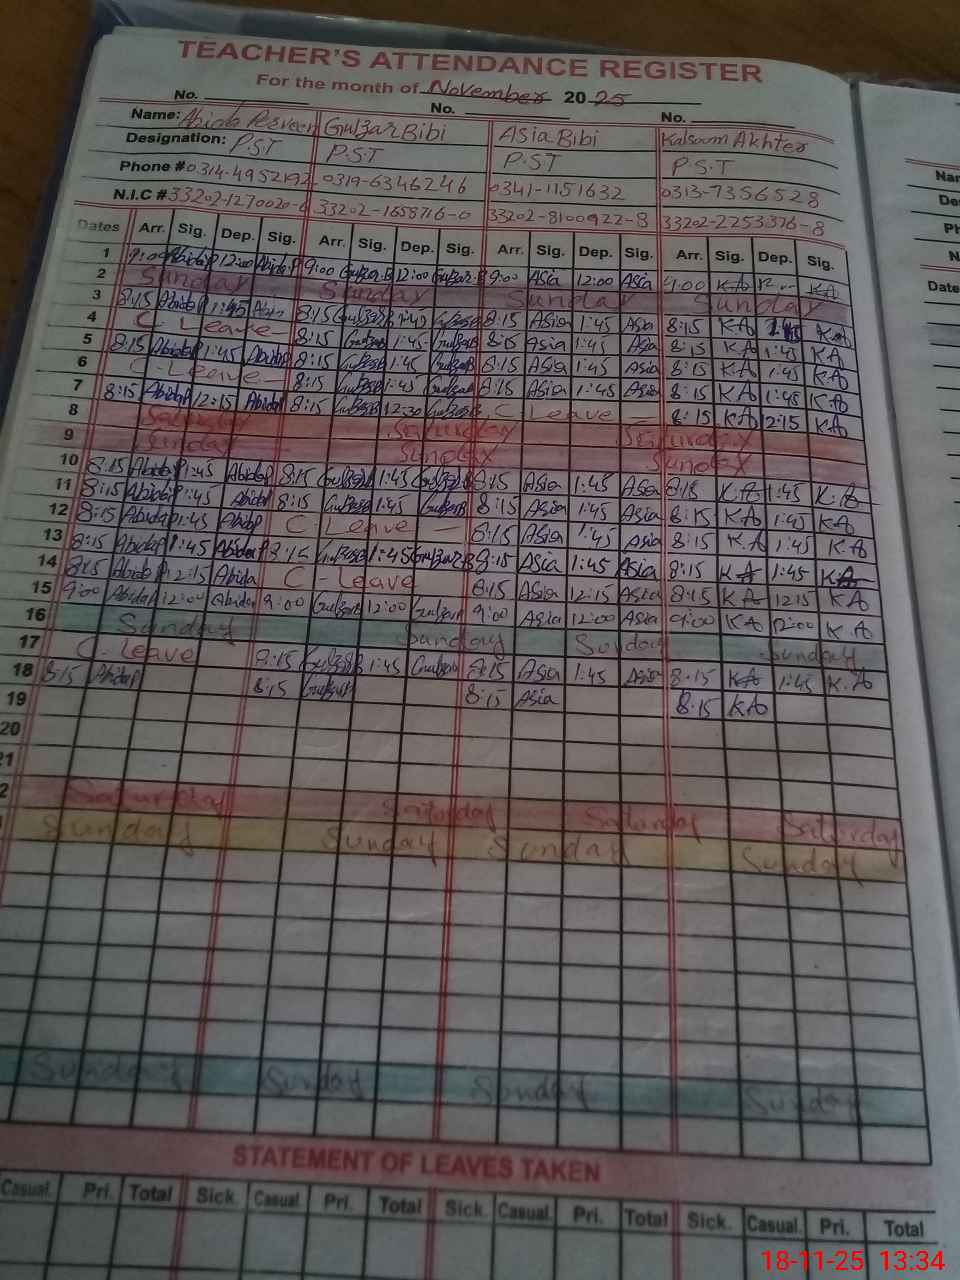 TEACHER'S ATTENDANCE REGISTER
For the month of November 2025
No. No. No.
Name: Abida Perveen Gulzar Bibi Asia Bibi Kalsoom Akhter
Designation: P.S.T P.S.T P.S.T P.S.T
Phone # 0314-4952192 0319-6346246 0341-1151632 0313-7356528
N.I.C # 33202-1270020-6 33202-1658716-0 33202-8100922-8 33202-2253376-8
Dates Arr. Sig. Dep. Sig. Arr. Sig. Dep. Sig. Arr. Sig. Dep. Sig. Arr. Sig. Dep. Sig.
1 9:00 Abida P 12:00 Abida P 9:00 Gulzar B 12:00 Gulzar B 9:00 Asia 12:00 Asia 9:00 K.A K.A
2 Sunday Sunday Sunday Sunday
3 8:15 Abida P 1:45 8:15 Gulzar B 1:45 Gulzar B 8:15 Asia 1:45 Asia 8:15 K.A 1:45 K.A
4 C. Leave 8:15 Gulzar B 1:45 Gulzar B 8:15 Asia 1:45 Asia 8:15 K.A 1:45 K.A
5 8:15 Abida P 1:45 Abida P 8:15 Gulzar B 1:45 Gulzar B 8:15 Asia 1:45 Asia 8:15 K.A 1:45 K.A
6 C-Leave 8:15 Gulzar B 1:45 Gulzar B 8:15 Asia 1:45 Asia 8:15 K.A 1:45 K.A
7 8:15 Abida P 12:15 Abida P 8:15 Gulzar B 12:30 Gulzar B C-Leave 8:15 K.A 12:15 K.A
8 Saturday Saturday Saturday
9 Sunday Sunday Sunday
10 8:15 Abida P 1:45 Abida P 8:15 Gulzar B 1:45 Gulzar B 8:15 Asia 1:45 Asia 8:15 K.A 1:45 K.A
11 8:15 Abida P 1:45 Abida P 8:15 Gulzar B 1:45 Gulzar B 8:15 Asia 1:45 Asia 8:15 K.A 1:45 K.A
12 8:15 Abida P 1:45 Abida P C-Leave 8:15 Asia 1:45 Asia 8:15 K.A 1:45 K.A
13 8:15 Abida P 1:45 Abida P 8:15 Gulzar B 1:45 Gulzar B 8:15 Asia 1:45 Asia 8:15 K.A 1:45 K.A
14 8:15 Abida P 12:15 Abida C-Leave 8:15 Asia 12:15 Asia 8:15 K.A 12:15 K.A
15 9:00 Abida P 12:00 Abida 9:00 Gulzar B 12:00 Gulzar B 9:00 Asia 12:00 Asia 9:00 K.A 12:00 K.A
16 Sunday Sunday Sunday Sunday
17 C-Leave 8:15 Gulzar B 1:45 Gulzar B 8:15 Asia 1:45 Asia 8:15 K.A 1:45 K.A
18 8:15 Abida P 8:15 Gulzar B 8:15 Asia 8:15 K.A
19
20
21
2 Saturday Saturday Saturday Saturday
Sunday Sunday Sunday Sunday
Sunday Sunday Sunday Sunday
STATEMENT OF LEAVES TAKEN
Casual. Pri. Total Sick. Casual. Pri. Total Sick. Casual. Pri. Total Sick. Casual. Pri. Total
18-11-25 13:34